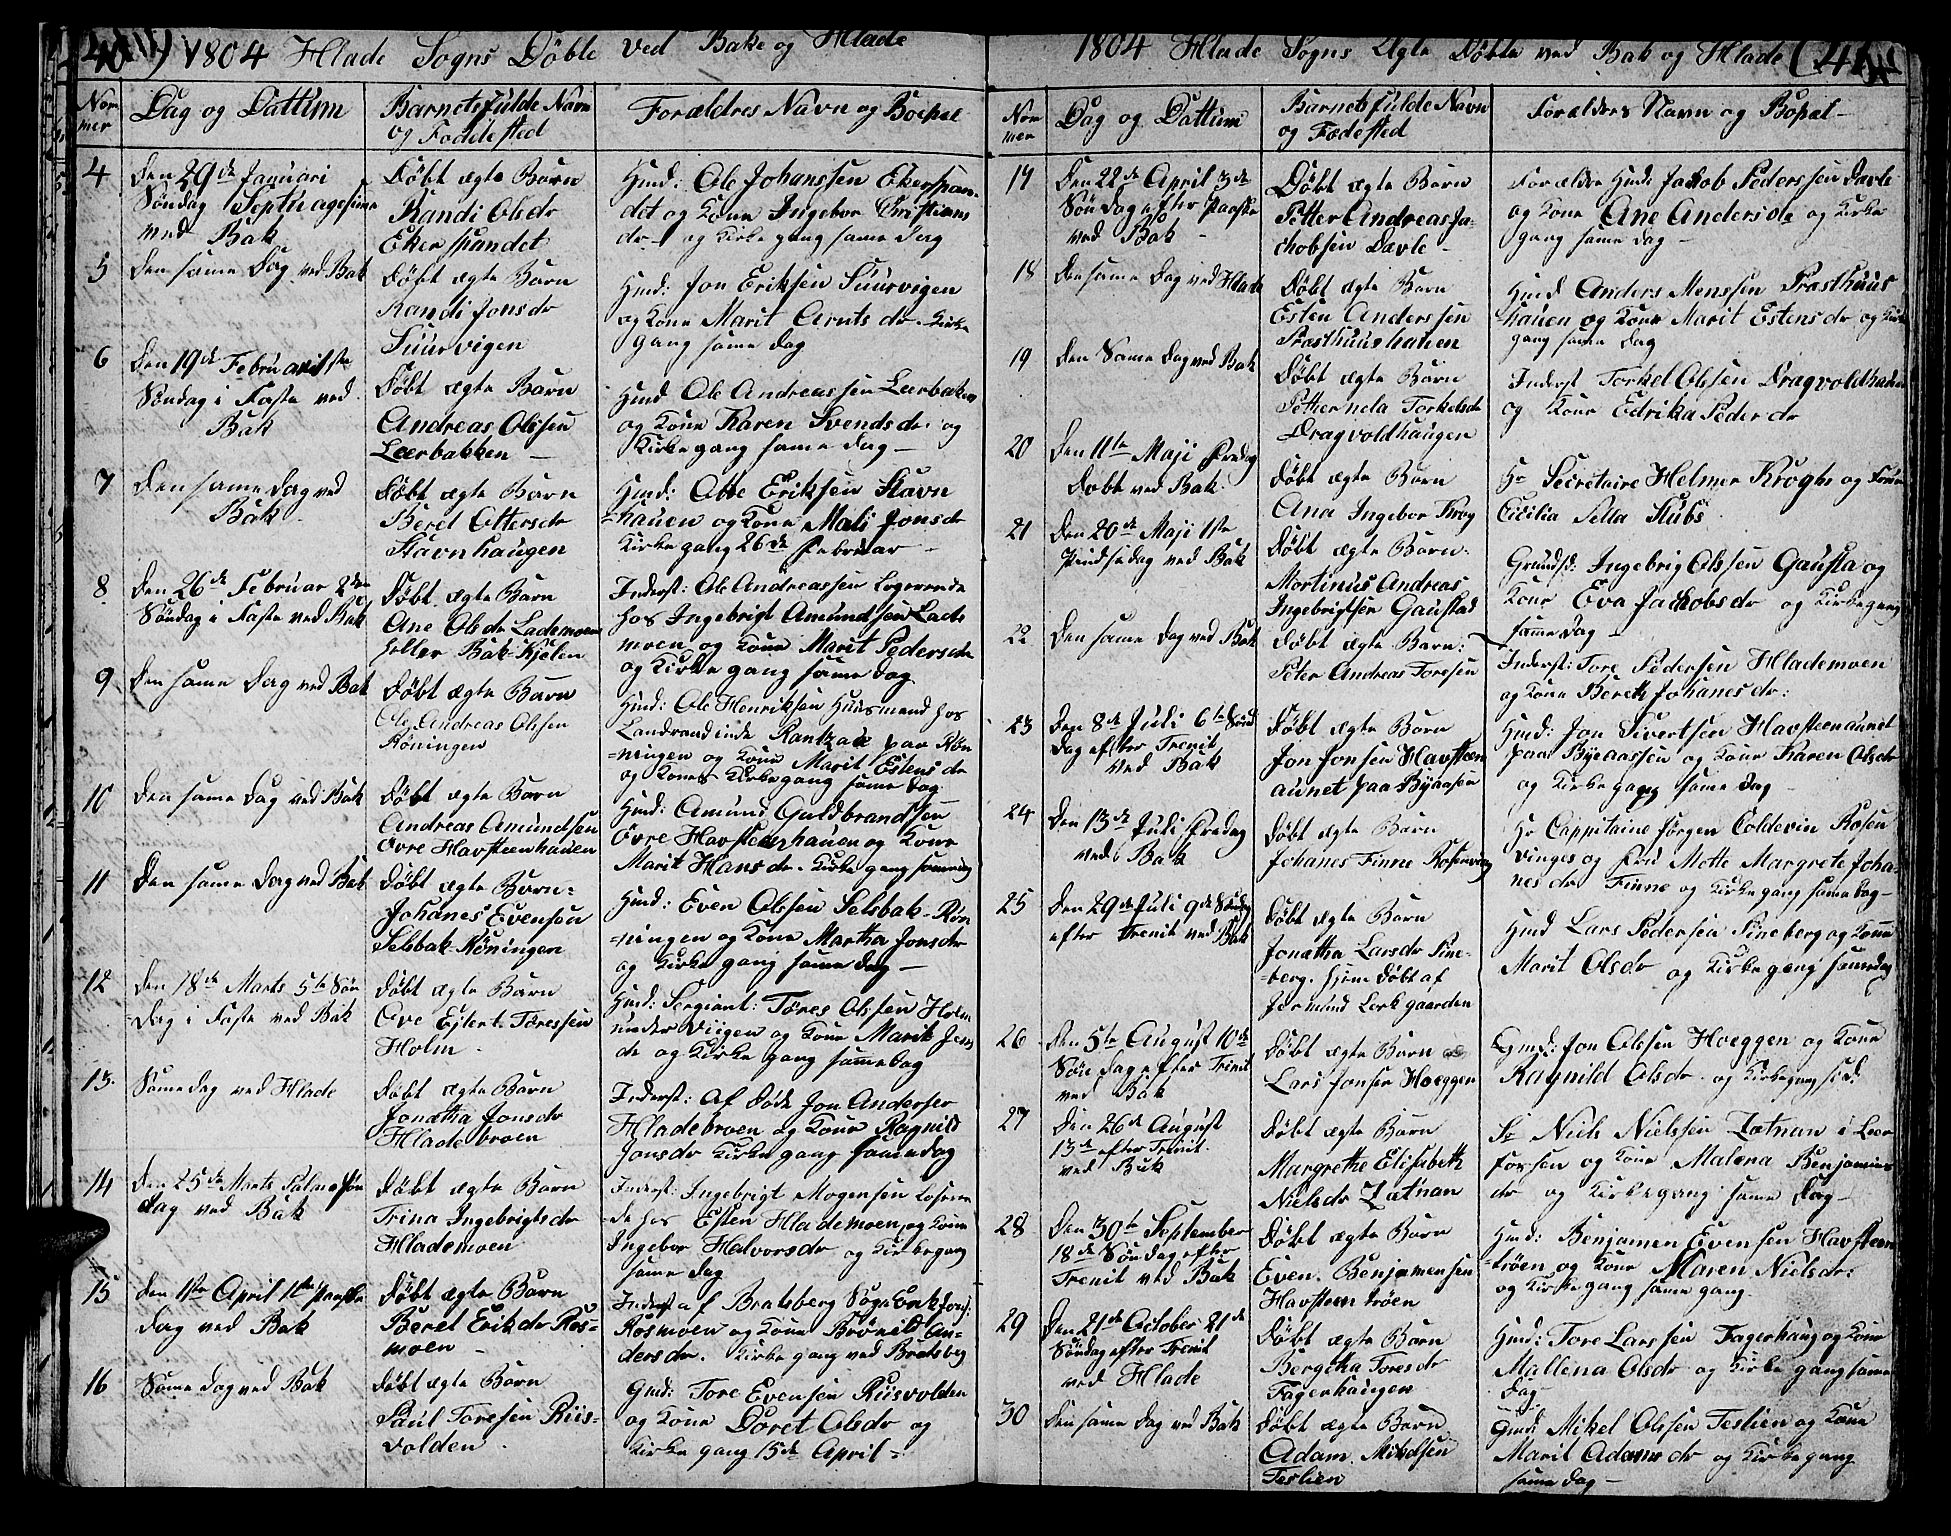 40) 1804 Hlade Sogns Döbte ved Bake og Hlade
Nommer
Dag og Dattum
Barnets fulde Navn
og Fødested
Forældres Navn og Boepæl
4
Den 29de Januari
Søndag Septuagesima
ved Bak
Døbt ægte Barn
Randi Olsdr
Ekerspandet
Hmd: Ole Johanssen Ekerspan-
det og Kone Ingebor Cristians
dr og Kirkegang same dag
5
Den same Dag ved Bak
Døbt ægte Barn
Randi Jonsdr
Suurvigen
Hmd: Jon Eriksen Suurvigen
og Kone Marit Arntsdr. Kirke
gang same dag
6
Den 19de Februari 1ste
Søndag i Faste ved
Bak
Døbt ægte Barn
Andreas Olssen
Leerbakken
Hmd Ole Andreassen Leerbaken
og Kone Karen Svendsdr. og
Kirkegang same dag
7
Den same Dag ved
Bak
Døbt ægte Barn
Beret Ottersdr
Stavnhaugen
Hmd: Otte Eriksen Stavn
hauen og Kone Mali Jonsdr
Kirkegang 26de Februar
8
Den 26de Februar 2den
Søndag i Faste ved Bak
Døbt ægte Barn
Ane Olsdr Lademoen
heller Bak-Kjelen
Inderst: Ole Andreassen Logerende
hos Ingebrigt Amundsen Lade
moen og Kone Marit Pedersdr
og Kirkegang same dag
9
Den same Dag ved Bak
Døbt ægte Barn
Ole Andreas Olssen
Røningen
Hmd: Ole Henriksen Huusmand hos
Landraadinde Rantzau paa Røn
ningen og Kone Marit Estensdr
og Kones Kirkegang same dag
10
Den same dag ved Bak
Døbt ægte Barn
Andreas Amundsen
Øvre Havsteenhauen
Hmd: Amund Guldbrandsen
Øvre Havsteenhauen og Kone
Marit Hansdr. Kirkegang samedag
11
Den same dag ved Bak
Døbt ægte Barn
Johanes Evensen
Selsbak-Røningen
Hmd: Even Olssen Selsbak-Røn
ningen og Kone Martha Jonsdr
og Kirkegang same dag
12
Den 18de Marts 5te Søn
dag i Faste ved Bak
Døbt ægte Barn
Ove Ejlert Tøressen
Holm
Hmd: Sergiant: Tøres Olssen Holm
under Viigen og Kone Marit Jens
dr og Kirkegang samedag
13.
Same dag ved Hlade
Døbt ægte Barn
Jonatha Jonsdr
Hladebroen
Inderst: Af Døde Jon Anderser
Hladebroen og Kone Ragnild
Jonsdr Kirkegang samedag
14
Den 25de Marts Palmesøn
dag ved Bak
Døbt ægte Barn
Trina Ingebrigtsdr
Hlademoen
Inderst: Ingebrigt Mogensen Loseren
de hos Esten Hlademoen og Kone
Ingebor Halvorsdr og Kirkegang
same dag
15
Den 1ste April 1ste Paaske
dag ved Bak
Døbt ægte Barn
Beret Erikdr Ros-
moen
Inderst af Bratsberg Sogn Erik Jons:
Rosmoen og Kone Brønild An-
dersdr. Kirkegang ved Bratsberg
16
Same dag ved Bak
Døbt ægte Barn
Paul Toresen Riis-
volden
Gmd: Tore Evensen Riisvolden
og Kone Doret Olsdr og
Kirkegang 15de April
1804 Hlade Sogns Ægte Døbte ved Bak og Hlade (41
Nommer
Dag og Dattum
Barnets fulde Navn
og Fødested
Forælders Navn og Bopæl
17
Den 22de April 3de
Søndag efter Paaske
ved Bak
Døbt ægte Barn
Petter Andreas Ja-
chobsen Davle
Forældre Hmd: Jacob Pederssen Davle
og Kone Ane Andersdr og Kirke
gang same dag
18
Den same dag ved Hlade
Døbt ægte Barn
Esten Anderssen
Præsthuushauen
Hmd Anders Monssen Præsthuus
hauen og Kone Marit Estensdr og Kirke
gang same dag
19
Den Same dag ved Bak
Døbt ægte Barn
Petternela Torkelsdr
Dragvoldhaugen
Inderst Torkel Olssen Dragvoldhauen
og Kone Edrika Pederdr
20
Den 11te Maji Fredag
Døbt ved Bak
Døbt ægte Barn
Ana Ingebor Krog
Hr Secretaire Helmer Krogh og Frue
Cicilia Sella Stubs
21
Den 20de Maji 1ste
Pindsedag ved Bak
Døbt ægte Barn:
Mortinus Andreas
Ingebrigtsen Gaustad
Grunds: Ingebrig Olssen Gausta og
Kone Eva Jachobsdr og Kirkegang
same dag
22
Den same dag ved Bak
Døbt ægte Barn:
Peter Andreas Toresen
Inderst: Tore Pedersen Hlademoen
og Kone Bereth Johanesdr:
23
Den 8de Juli 6te Sønd
dag efter Trenit
ved Bak
Døbt ægte Barn
Jon Jonsen Havsteen
aunet paa Byaasen
Hmd: Jon Sivertsen Havsteenaunet
paa Byeaassen og Kone Karen Olsdr
og Kirkegang same dag
24
Den 13de Juli Fredag
ved Bak
Døbt ægte Barn
Johanes Finne Rosenving
Hr Cappitaine Jørgen Coldevin Rosen
vinges og Frue Motte Margrete Joha-
nesdr Finne og Kirkegang same dag
25
Den 29de Juli 9de Søndag
efter Trenit ved Bak
Døbt ægte Barn
Jonatha Larsdr Pine-
berg. hjeme døbt af
Jermund Lerkgaarden
Hmd Lars Pedersen Pineberg og Kone
Marit Olsdr og Kirkegang samedag
26
Den 5te August 10de
Søndag efter Trenit
ved Bak
Døbt ægte Barn
Lars Jonsen Hoeggen
Gmd: Jon Olssen Hoeggen og Kone
Ragnild Olsdr og Kirkegang
27
Den 26de August
13de efter Trenit.
ved Bak
Døbt ægte Barn
Margrethe Elisabeth
Nielsdr Lætnan
Sr Niels Nielssen Lætnan i Leer
fossen og Kone Malena Benjamins
dr og Kirkegang same dag
28
Den 30te September
18de Søndag efter
Trenit ved Bak
Døbt ægte Barn
Even Benjamensen
Havsteen trøen
Hmd: Benjamen Evensen Havsteen
trøen og Kone Maren Nielsdr:
og Kirkegang same gang.
29
Den 21de October 21de
Søndag efter Trenit
ved Hlade
Døbt ægte Barn
Bergitha Toresdr
Fagerhaugen
Hmd: Tore Larssen Fagerhaug og Kone
Mallena Olsdr og Kirkegang same
dag
30
Den same dag ved Bak
Døbt ægte Barn
Adam Mikelsen
Teslien
Gmd: Mikel Olssen Teslien og Kone
Marit Adamsdr og Kirkegang
same dag